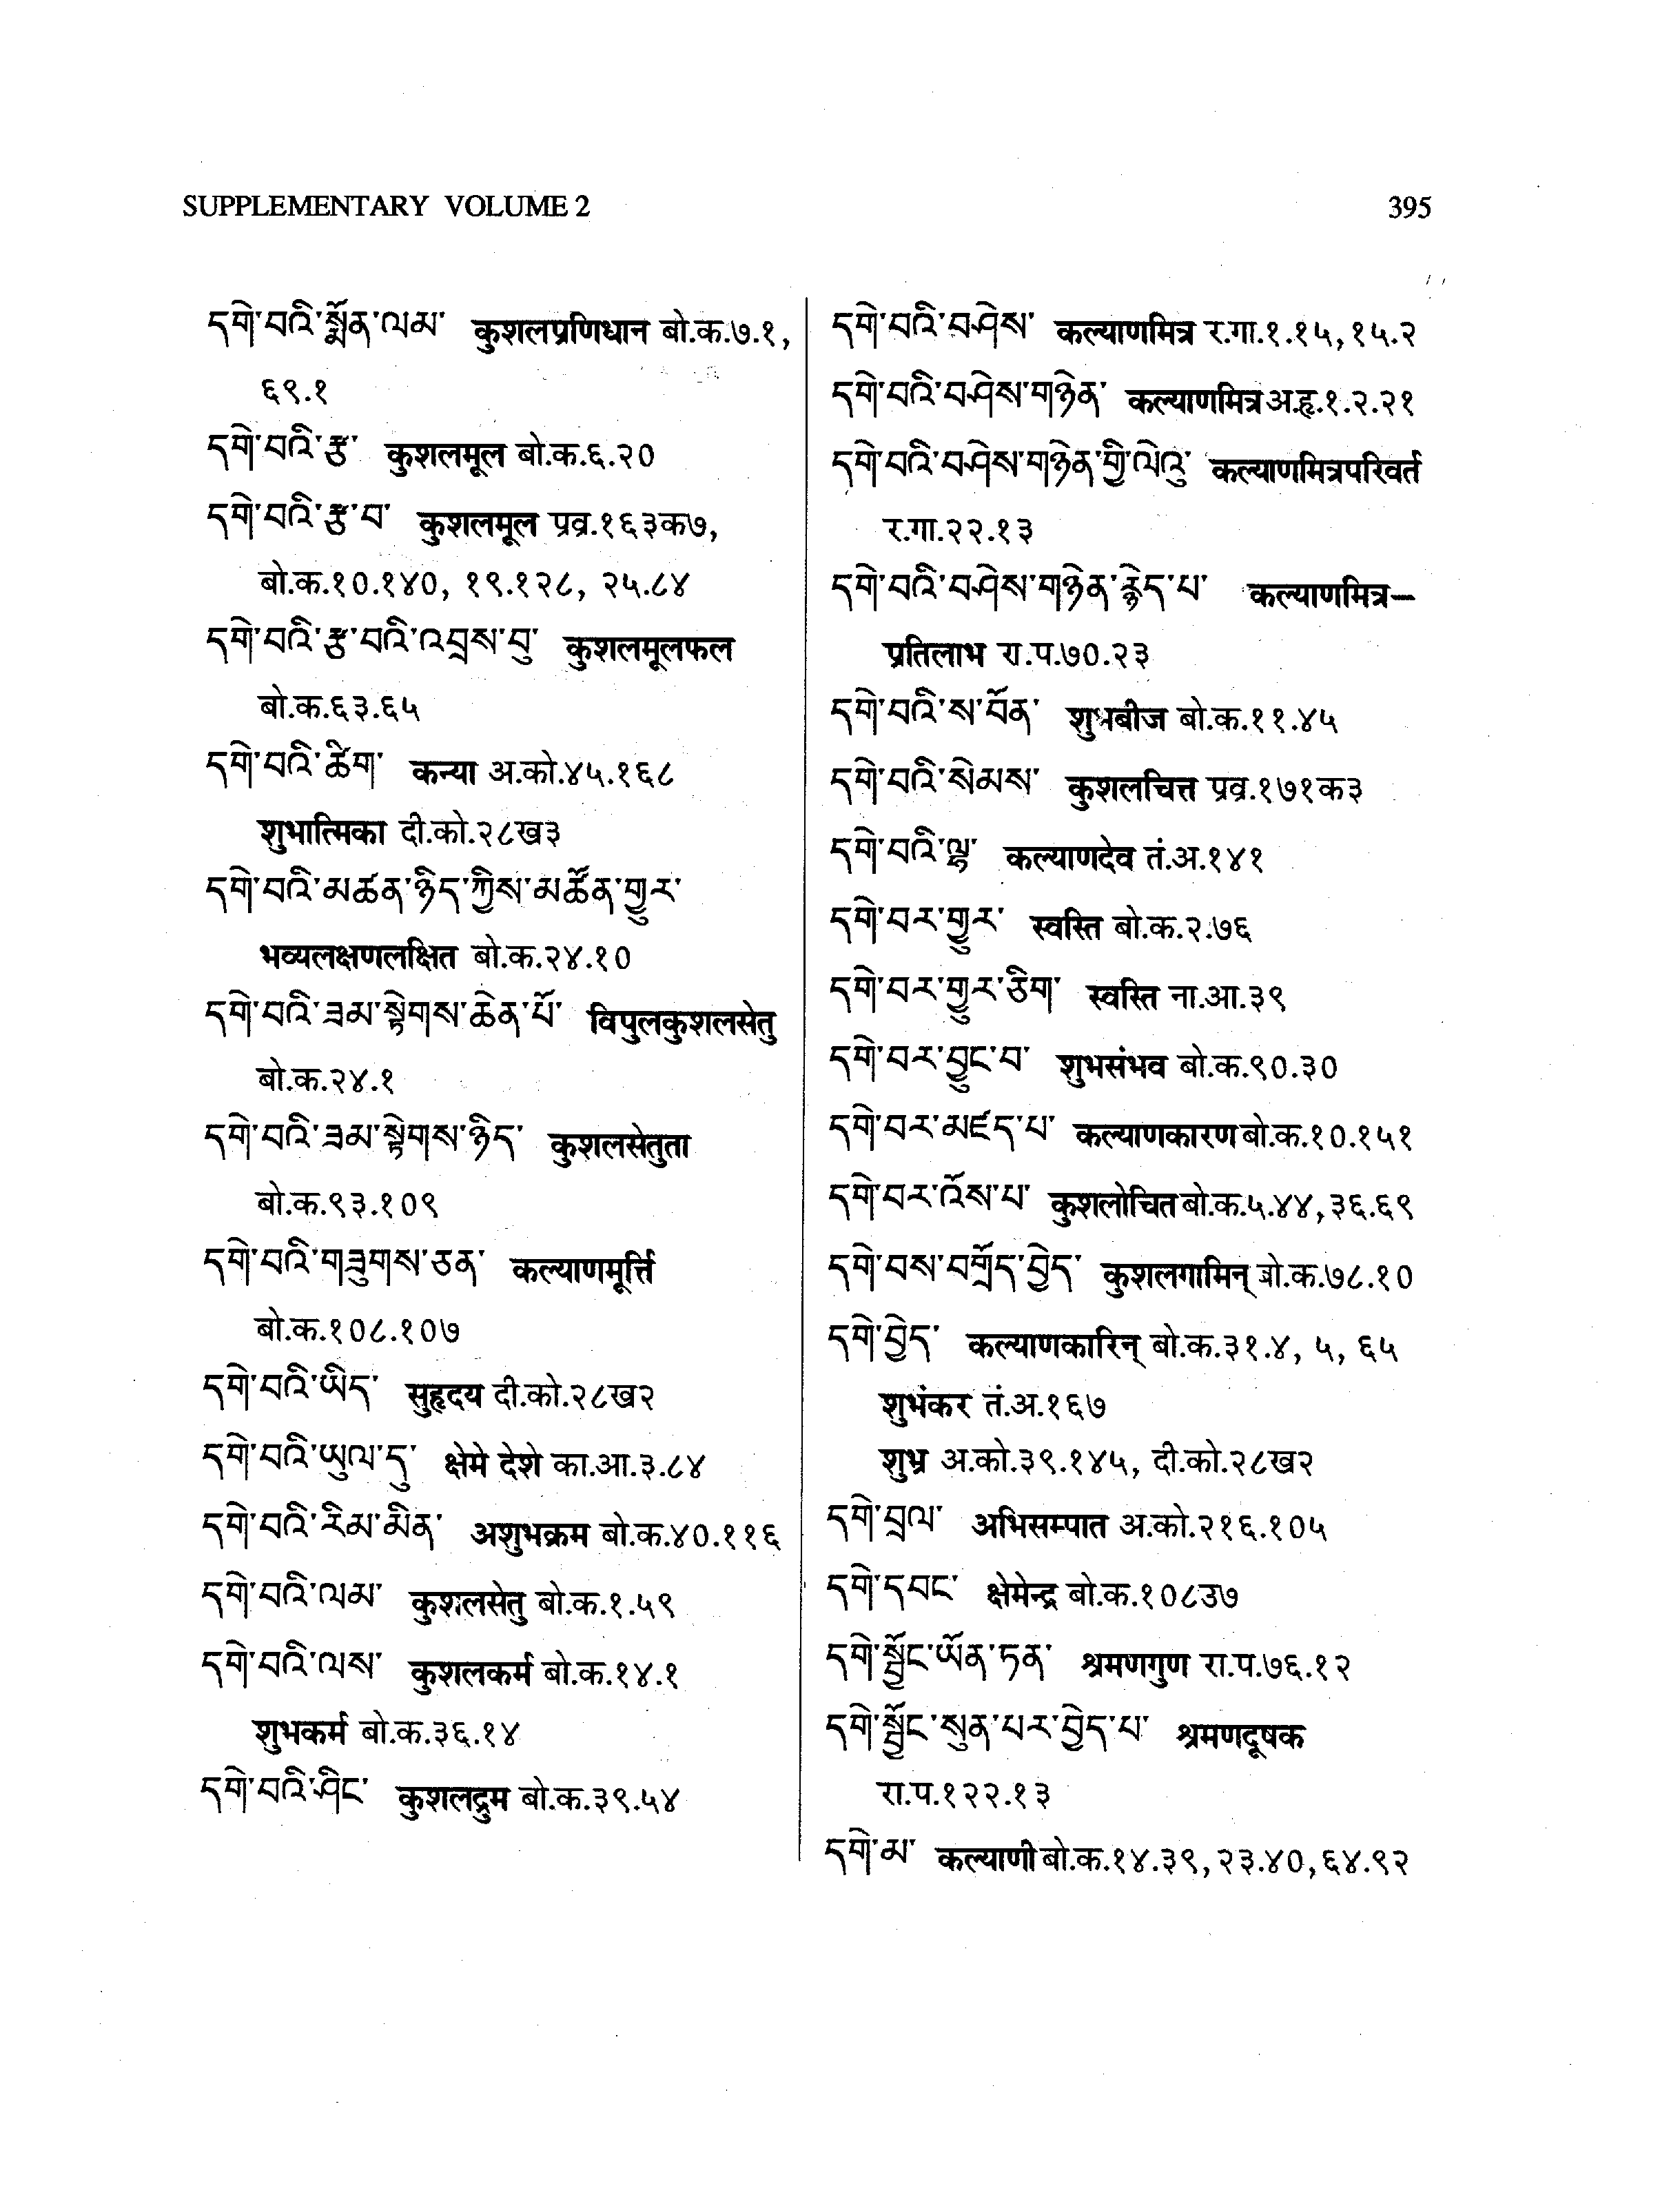 SUPPLEMENTARY VOLUME 2
395
དགེ་བའི་སྨོན་ལམ་ कुशलप्रणिधान बो.क.७.१,
६९.१
དགེ་བའི་རྩ་ कुशलमूल बो.क.६.२०
དགེ་བའི་རྩ་བ་ कुशलमूल प्रव्र.१६३क७,
बो.क.१०.१४०, १९.१२८, २५.८४
དགེ་བའི་རྩ་བའི་འབྲས་བུ་ कुशलमूलफल
बो.क.६३.६५
དགེ་བའི་ཚིག་ कन्या अ.को.४५.१६८
शुभात्मिका दी.को.२८ख३
དགེ་བའི་མཚན་ཉིད་ཀྱིས་མཚོན་གྱུར་
भव्यलक्षणलक्षित बो.क.२४.१०
དགེ་བའི་ཟམ་སྟེགས་ཆེན་པོ་ विपुलकुशलसेतु
बो.क.२४.१
དགེ་བའི་ཟམ་སྟེགས་ཉིད་ कुशलसेतुता
बो.क.९३.१०९
དགེ་བའི་གཟུགས་ཅན་ कल्याणमूर्त्ति
बो.क.१०८.१०७
དགེ་བའི་ཡིད་ सुहृदय दी.को.२८ख२
དགེ་བའི་ཡུལ་དུ་ क्षेमे देशे का.आ.३.८४
དགེ་བའི་རིམ་མིན་ अशुभक्रम बो.क.४०.११६
དགེ་བའི་ལམ་ कुशलसेतु बो.क.१.५९
དགེ་བའི་ལས་ कुशलकर्म बो.क.१४.१
शुभकर्म बो.क.३६.१४
དགེ་བའི་ཤིང་ कुशलद्रुम बो.क.३९.५४
དགེ་བའི་བཤེས་ कल्याणमित्र र.गा.१.१५, १५.२
དགེ་བའི་བཤེས་གཉེན་ कल्याणमित्र अ.हृ.१.२.२१
དགེ་བའི་བཤེས་གཉེན་གྱི་ལེའུ་ कल्याणमित्रपरिवर्त
र.गा.२२.१३
དགེ་བའི་བཤེས་གཉེན་རྙེད་པ་ कल्याणमित्र–
प्रतिलाभ रा.प.७०.२३
དགེ་བའི་ས་བོན་ शुभबीज बो.क.११.४५
དགེ་བའི་སེམས་ कुशलचित्त प्रव्र.१७१क३
དགེ་བའི་ལྷ་ कल्याणदेव तं.अ.१४१
དགེ་བར་གྱུར་ स्वस्ति बो.क.२.७६
དགེ་བར་གྱུར་ཅིག་ स्वस्ति ना.आ.३९
དགེ་བར་བྱུང་བ་ शुभसंभव बो.क.९०.३०
དགེ་བར་མཛད་པ་ कल्याणकारण बो.क.१०.१५१
དགེ་བར་འོས་པ་ कुशलोचित बो.क.५.४४, ३६.६९
དགེ་བས་བགྲོད་བྱེད་ कुशलगामिन् बो.क.७८.१०
དགེ་བྱེད་ कल्याणकारिन् बो.क.३१.४, ५, ६५
शुभंकर तं.अ.१६७
शुभ्र अ.को.३९.१४५, दी.को.२८ख२
དགེ་བྲལ་ अभिसम्पात अ.को.२१६.१०५
དགེ་དབང་ क्षेमेन्द्र बो.क.१०८उ७
དགེ་སྦྱོང་ཡོན་ཏན་ श्रमणगुण रा.प.७६.१२
དགེ་སྦྱོང་སུན་པར་བྱེད་པ་ श्रमणदूषक
रा.प.१२२.१३
དགེ་མ་ कल्याणी बो.क.१४.३९, २३.४०, ६४.९२